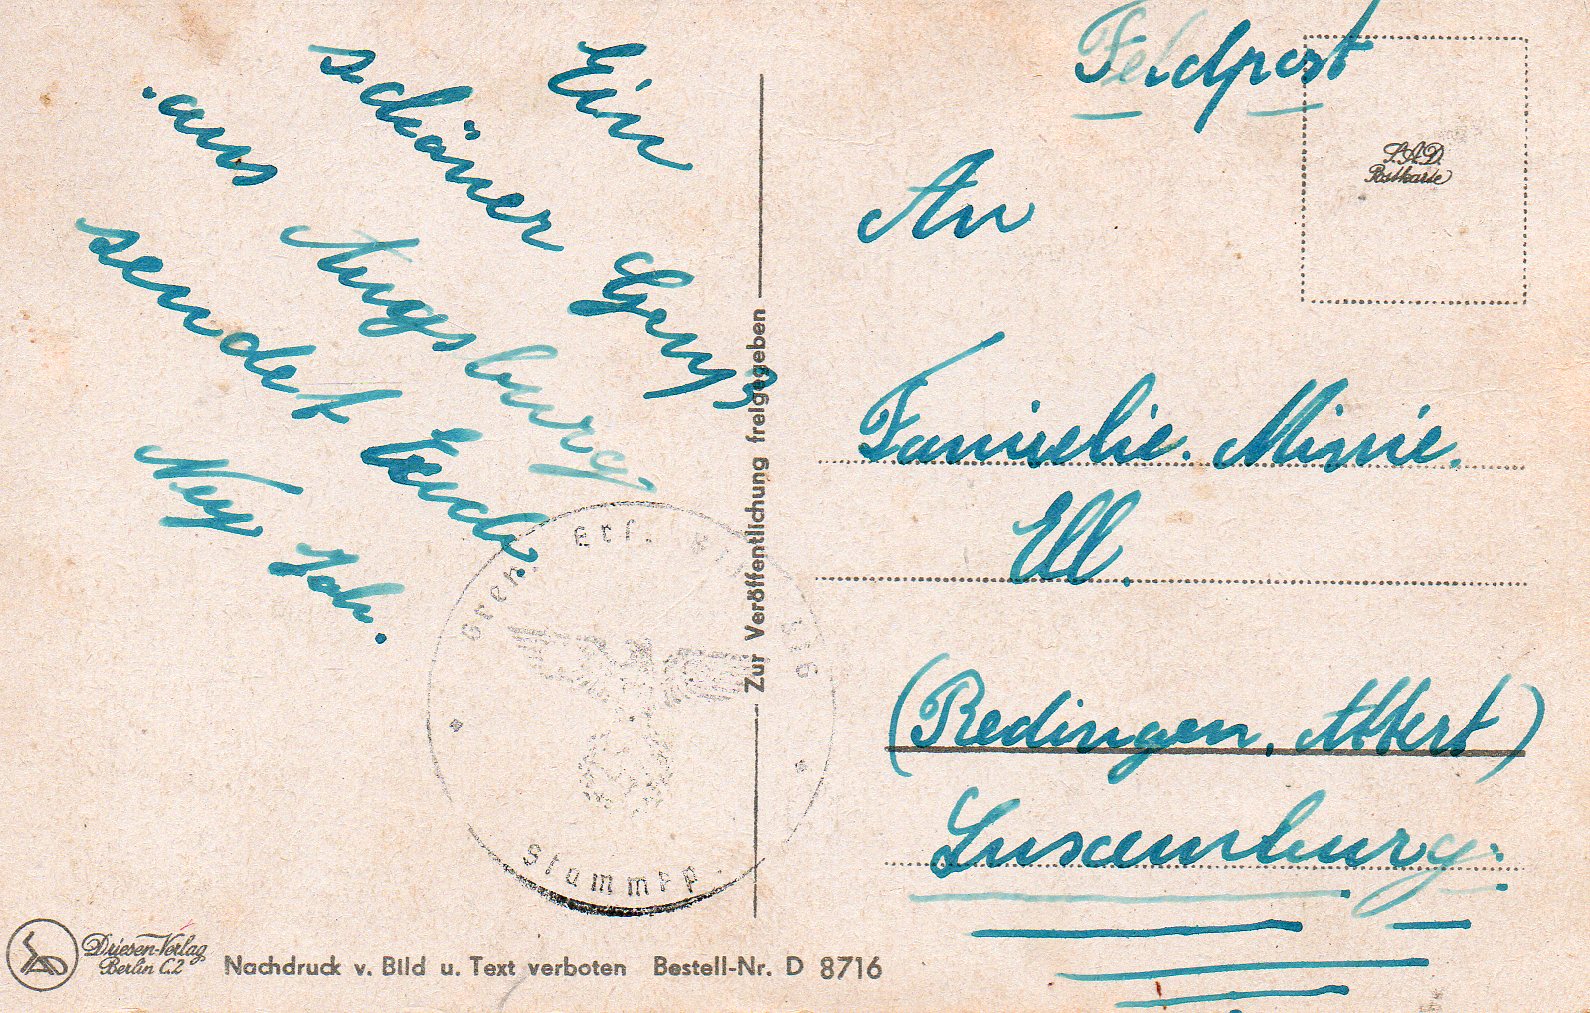 Feldpost
S.A.D.
Postkarte
Ein
schöner Gruß
aus Augsburg
sendet Euch.
Ney Joh.
An
Familie. Minie.
Ell.
(Redingen, Attert)
Luxemburg.
Zur Veröffentlichung freigegeben
Gren. Ers.
Stammkp.
Driesen-Verlag
Berlin C.2
Nachdruck v. Bild u. Text verboten Bestell-Nr. D 8716